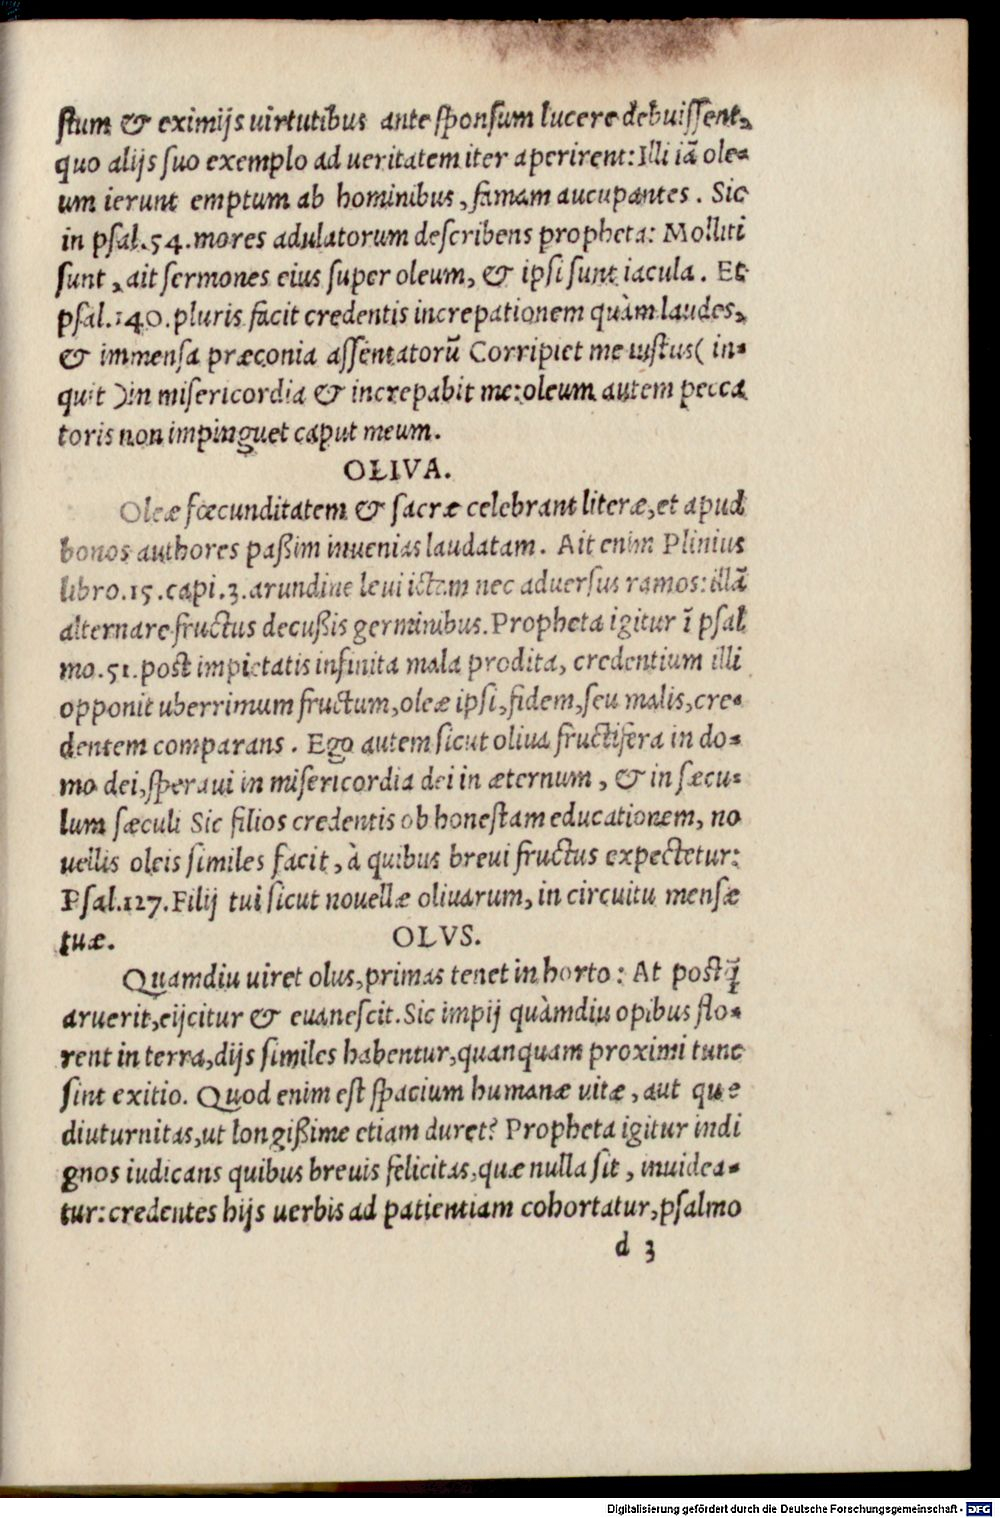 stum & eximijs uirtutibus ante sponsum lucere debuissent,
quo alijs suo exemplo ad ueritatem iter aperirent: Illi iã ole-
um ierunt emptum ab hominibus, famam aucupantes. Sic
in psal.54.mores adulatorum describens propheta: Molliti
sunt, ait sermones eius super oleum, & ipsi sunt iacula. Et
psal.140.pluris facit credentis increpationem quàm laudes,
& immensa præconia assentatorũ Corripiet me iustus( in-
quit )in misericordia & increpabit me:oleum autem pecca
toris non impinguet caput meum.
OLIVA.
Oleæ fœcunditatem & sacræ celebrant literæ, et apud
bonos authores paßim inuenias laudatam. Ait enim Plinius
libro.15.capi.3.arundine leui ictem nec aduersus ramos: illã
alternare fructus decußis germinibus. Propheta igitur ĩ psal
mo.51.post impietatis infinita mala prodita, credentium illi
opponit uberrimum fructum, oleæ ipsi, fidem, seu malis, cre-
dentem comparans. Ego autem sicut oliua fructifera in do-
mo dei, speraui in misericordia dei in æternum, & in sæcu-
lum sæculi Sic filios credentis ob honestam educationem, no
uellis oleis similes facit, à quibus breui fructus expectetur:
Psal.127.Filij tui sicut nouellæ oliuarum, in circuitu mensæ
tuæ. OLVS.
Quamdiu uiret olus, primas tenet in horto: At postq̃
aruerit, eijcitur & euanescit. Sic impij quàmdiu opibus flo-
rent in terra, dijs similes habentur, quanquam proximi tunc
sint exitio. Quod enim est spacium humanæ uitæ, aut que
diuturnitas, ut longißime etiam duret? Propheta igitur indi
gnos iudicans quibus breuis felicitas, quæ nulla sit, inuidea-
tur: credentes hijs uerbis ad patientiam cohortatur, psalmo
d 3
Digitalisierung gefördert durch die Deutsche Forschungsgemeinschaft - DFG